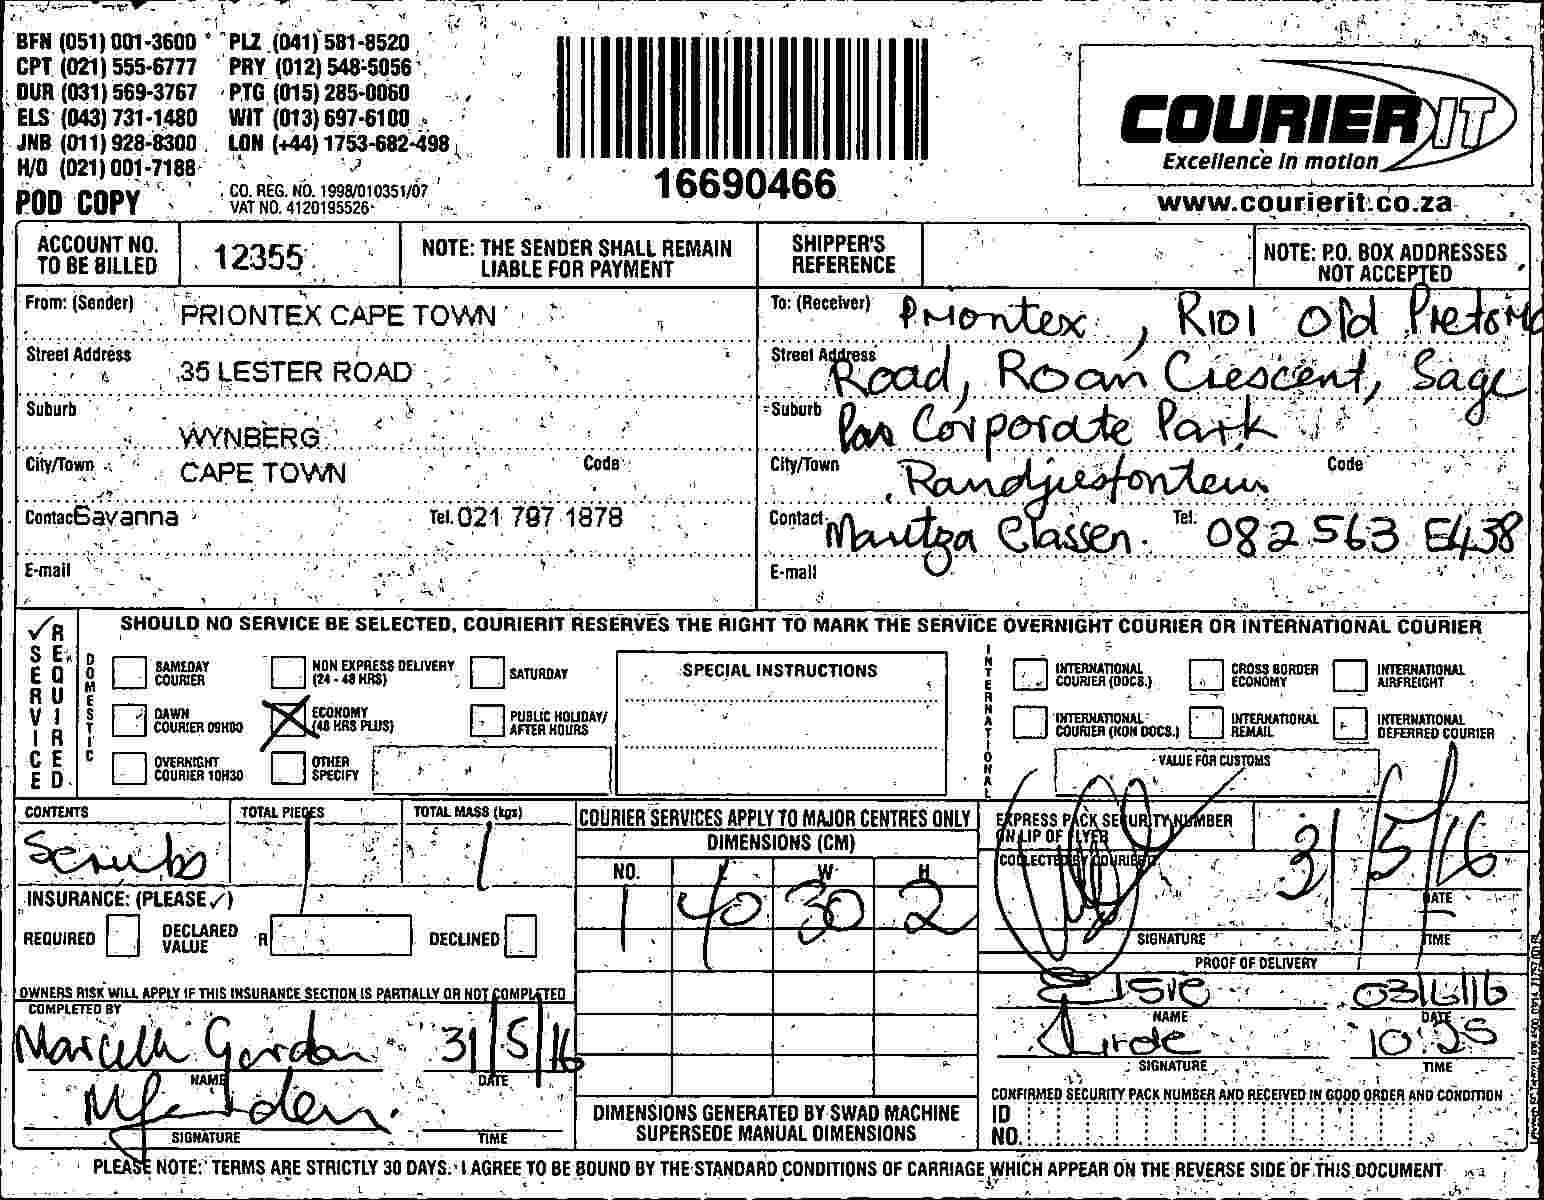 BFN (051) 001-3600 PLZ (041) 581-8520
CPT (021) 555-6777 PRY (012) 548-5056
DUR (031) 569-3767 PTG (015) 285-0060
ELS (043) 731-1480 WIT (013) 697-6100
JNB (011) 928-8300 LON (+44) 1753-682-498
H/O (021) 001-7188
POD COPY
CO. REG. NO. 1998/010351/07
VAT NO. 4120195526
16690466
COURIER IT
Excellence in motion
www.courierit.co.za
ACCOUNT NO.
TO BE BILLED
12355
NOTE: THE SENDER SHALL REMAIN
LIABLE FOR PAYMENT
SHIPPER'S
REFERENCE
NOTE: P.O. BOX ADDRESSES
NOT ACCEPTED
From: (Sender) PRIONTEX CAPE TOWN
Street Address 35 LESTER ROAD
Suburb WYNBERG
City/Town CAPE TOWN Code
Contact Savanna Tel. 021 797 1878
E-mail
To: (Receiver) Priontex, R101 Old Pretoria
Street Address Road, Roan Crescent, Sage
Suburb Corporate Park
City/Town Randjiesfontein Code
Contact Maritza Classen. Tel. 082 563
E-mail
SERVICE REQUIRED
SHOULD NO SERVICE BE SELECTED, COURIERIT RESERVES THE RIGHT TO MARK THE SERVICE OVERNIGHT COURIER OR INTERNATIONAL COURIER
DOMESTIC
SAMEDAY
COURIER
NON EXPRESS DELIVERY
(24 - 48 HRS)
SATURDAY
DAWN
COURIER 09H00
ECONOMY
(48 HRS PLUS)
PUBLIC HOLIDAY/
AFTER HOURS
OVERNIGHT
COURIER 10H30
OTHER
SPECIFY
SPECIAL INSTRUCTIONS
INTERNATIONAL
INTERNATIONAL
COURIER (DOCS.)
CROSS BORDER
ECONOMY
INTERNATIONAL
AIRFREIGHT
INTERNATIONAL
COURIER (NON DOCS.)
INTERNATIONAL
REMAIL
INTERNATIONAL
DEFERRED COURIER
VALUE FOR CUSTOMS
CONTENTS
Scrubs
TOTAL PIECES
1
TOTAL MASS (kgs)
1
INSURANCE: (PLEASE ✓)
REQUIRED DECLARED
VALUE R DECLINED
OWNERS RISK WILL APPLY IF THIS INSURANCE SECTION IS PARTIALLY OR NOT COMPLETED
COMPLETED BY
Gordon 31/5/16
NAME DATE
SIGNATURE TIME
COURIER SERVICES APPLY TO MAJOR CENTRES ONLY
DIMENSIONS (CM)
NO. L W H
1 40 30 2
DIMENSIONS GENERATED BY SWAD MACHINE
SUPERSEDE MANUAL DIMENSIONS
EXPRESS PACK SECURITY NUMBER
ON LIP OF FLYER
COLLECTED BY COURIERIT
31/5/16
DATE
SIGNATURE TIME
PROOF OF DELIVERY
03/6/16
NAME DATE
SIGNATURE TIME
CONFIRMED SECURITY PACK NUMBER AND RECEIVED IN GOOD ORDER AND CONDITION
ID
NO.
PLEASE NOTE: TERMS ARE STRICTLY 30 DAYS. I AGREE TO BE BOUND BY THE STANDARD CONDITIONS OF CARRIAGE WHICH APPEAR ON THE REVERSE SIDE OF THIS DOCUMENT